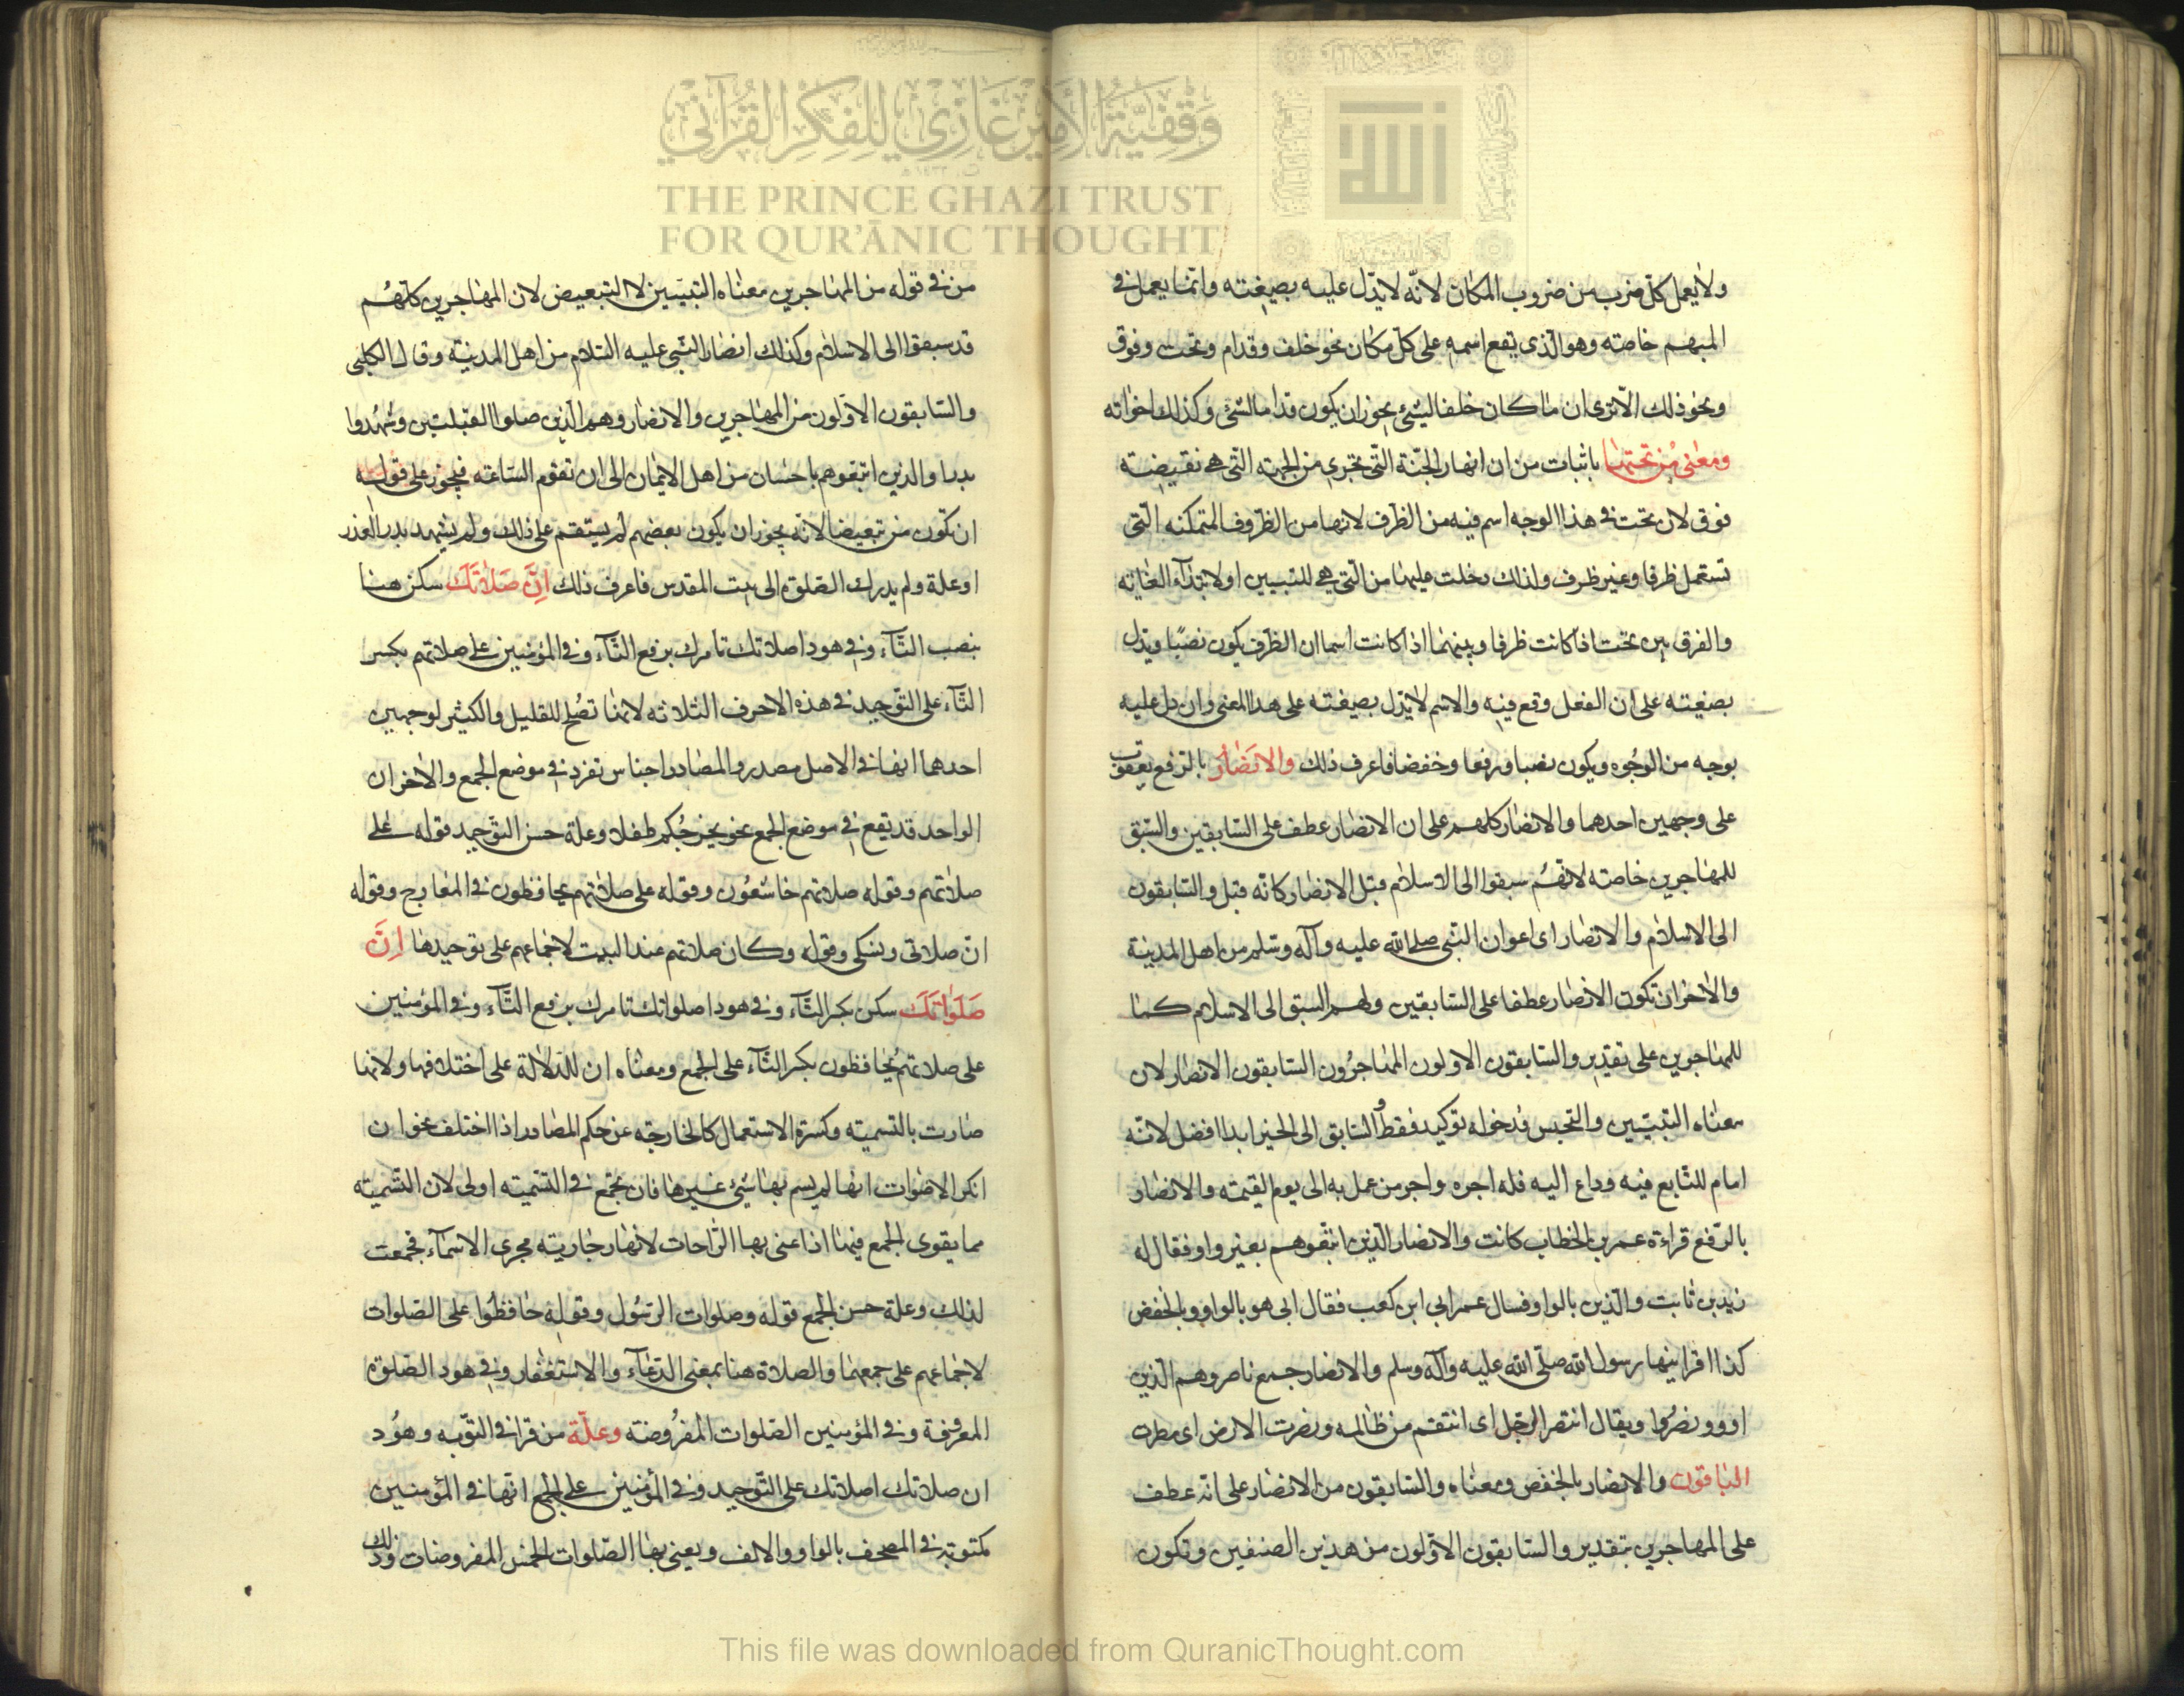 ولا يعمل كلّ ضرب من ضروب المكان لانّه لا يدّل عليه بصيغته وانّما يعمل فى
المبهم خاصّته وهو الّذى يقع اسمه على كلّ مكان نحو خلف وقدام وتحت وفوق
ونحو ذلك الا ترى ان ما كان خلفا لشئ يجوز ان يكون قداما لشئ وكذلك اخواته
ومعنى من تحتها باثبات من ان انهار الجنّة الّتى تجرى من الجهته التى هى نقيضته
فوق لان تحت فى هذا الوجه اسم فيه من الظرف لانها من الظروف المتمكنه الّتى
تستعمل ظرفا وغير ظرف ولذلك دخلت عليها من الّتى هى للتبيين او لابتداء الغايته
والفرق بين تحت اذا كانت ظرفا وبينهما اذا كانت اسما ان الظرف يكون نصبًا ويدّل
بصيغته على ان الفعل وقع فيه والاسم لا يدّل بصيغته على هذا المعنى وان دل عليه
بوجه من الوجُوه ويكون نصبا ورفعا وخفضا فاعرف ذلك والانصَارُ بالرّفع يعقوب
على وجهين احدهما والانصار كلهم على ان الانصار عطف على السّابقين والسّبق
للمهاجرين خاصته لانّهُم سبقوا الى الاسلام قبل الانصار كانّه قيل والسّابقون
الى الاسلام والانصار اى اعوان النّبى صلى الله عليه وآله وسّلم من اهل المدينة
والاخر ان تكون الانصار عطفا على السّابقين ولهم السبق الى الاسلام كما
للمهاجرين على تقدير والسّابقون الاولون المهاجرُون السّابقون الانصار لان
معناه التبيّين والتجنس فدخوله توكيد فقط والسّابق الى الخير ابدا افضل لانّه
امام للتّابع فيه وداع اليه فله اجره واجر من عمل به الى يوم القيمته والانصار
بالرّفع قراءة عمر بن الخطاب كانت والانصار الّذين اتّبعوهم بغير واو فقال له
زيد بن ثابت والّذين بالواو فسال عمر ابى ابن كعب فقال ابى هو بالواو وبالخفض
كذا اقرا ينها رسول الله صلّى الله عليه وآله وسلم والانصار جمع ناصر وهم الّذين
اووو نصرُوا ويقال انتصر الرجل اى انتقم من ظالمه ونصرت الارض اى مطرت
الباقون والانصار بالخفض ومعناه والسّابقون من الانصار على انّه عطف
على المهاجرين بتقدير والسّابقون الاوّلون من هذين الصنفين وتكون
من فى قوله من المهاجرين معناه التبيّين لا التبعيض لان المهاجرين كلّهُم
قد سبقوا الى الاسلام وكذلك انصار النّبى عليه السّلام من اهل المدينة وقال الكلبى
والسّابقون الاوّلون من المهاجرين والانصار وهم الّذين صلوا القبلتين وشهدوا
بدرا والذين اتبعوهم باحسان من اهل الايمان الى ان تقوم السّاعته فيجوز على قوله
ان تكون من تبعيضا لانّه يجوز ان يكون بعضهم لم يستقم على ذلك ولم يشهد بدر العذر
او علة ولم يدرك الصّلوة الى بيت المقدس فاعرف ذلك اِنَّ صَلَاتَكَ سكن هنا
بنصب التّآء وفى هود اصلاتك تامرك برفع التّآء وفى المؤمنين على صلاتهم بكسر
التّآء على التّوحيد فى هذه الاحرف الثلاثه لانها تصُلح للقليل والكثير لوجهين
احدهما انها فى الاصل مصدر والمصادر اجناس تفرد فى موضع الجمع والاخر ان
الواحد قد يقع فى موضع الجمع نحو يخرجُكم طفلا وعلة حسن التوّحيد قوله على
صلاتهم وقوله صلاتهم خاشعُون وقوله على صلاتهم يحافظون فى المعارج وقوله
انّ صلاتى ونسكى وقوله وكان صلاتهم عند البيت لاجماعهم على توحيدها اِنَّ
صَلَوَاتِكَ سكن بكسر التّآء وفى هود اصلواتك تامرك برفع التّآء وفى المؤمنين
على صلاتهم يُحافظون بكسر التّآء على الجمع ومعناه ان للدّلالة على اختلافها ولانها
صارت بالتسميته وكسرة الاستعمال كالخارجته عن حكم المصادر اذا اختلف نحو ان
انكر الاصوات انها لم يسم بها شئ غيرها فان تجمع فى التسميته اولى لان التّسميته
مما يقوى الجمع فيها اذا عنى بها الرّاحات لانها جاريته مجرى الاسمآء فجمعت
لذلك وعلة حسن الجمع قوله وصلوات الرّسُول وقوله حافظُوا على الصّلوات
لاجماعهم على جمعها والصلاة هنا بمعنى الدّعآء والاستغفار وفى هود الصّلوة
المعروفة وفى المؤمنين الصّلوات المفروضته وعلّة من قرا فى التّوبه وهُود
ان صلاتك اصلاتك على التّوحيد وفى المؤمنين على الجمع انها فى المؤمنين
مكتوبة فى المصحف بالواو والالف ويعنى بها الصّلوات الخمس المفروضات وذلك
وقفية الأمير غازي للفكر القرآني
THE PRINCE GHAZI TRUST
FOR QUR'ĀNIC THOUGHT
This file was downloaded from QuranicThought.com